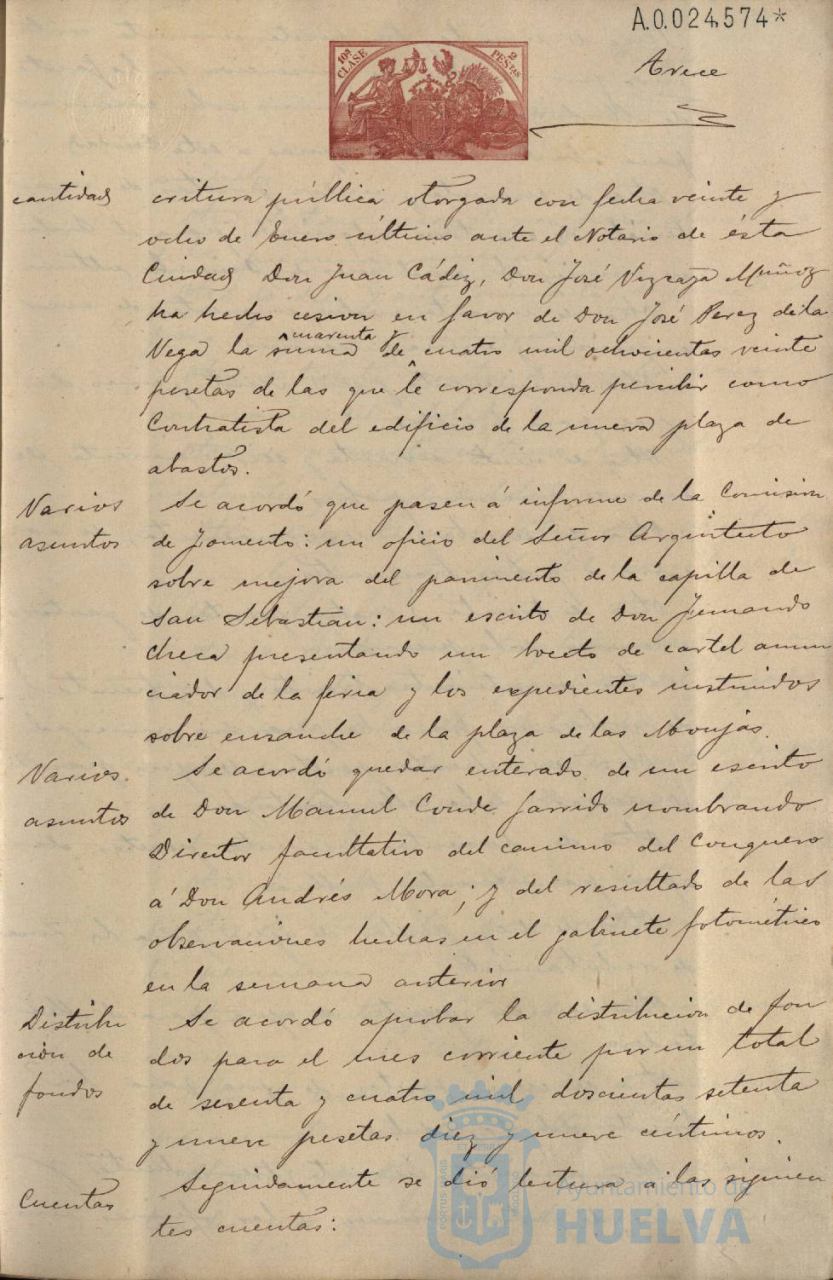 A.0.024,574*
10ª CLASE
2 PESETAS
Trece
cantidad
critura pública otorgada con fecha veinte y
ocho de Enero último ante el Notario de ésta
Ciudad Don Juan Cádiz, Don José Vizcaya Muñoz
ha hecho cesion en favor de Don José Perez de la
cuarenta y
Vega la suma de cuatro mil ochocientas veinte
pesetas de las que le corresponda percibir como
Contratista del edificio de la nueva plaza de
abastos.
Varios
asuntos
Se acordó que pasen á informe de la Comision
de Fomento: un oficio del Señor Arquitecto
sobre mejora del pavimento de la capilla de
San Sebastián: un escrito de Don Fernando
Checa presentando un boceto de cartel anun
ciador de la feria y los expedientes instruidos
sobre ensanche de la plaza de las Monjas.
Varios.
asuntos
Se acordó quedar enterado de un escrito
de Don Manuel Conde Garrido nombrando
Director facultativo del camino del Conquero
á Don Andrés Mora; y del resultado de las
observaciones hechas en el gabinete fotométrico
en la semana anterior
Distribu
ción de
fondos
Se acordó aprobar la distribucion de fon
dos para el mes corriente por un total
de sesenta y cuatro mil doscientas setenta
y nueve pesetas diez y nueve céntimos.
Cuentas
Seguidamente se dió lectura a las siguien
tes cuentas:
Ayuntamiento de
HUELVA